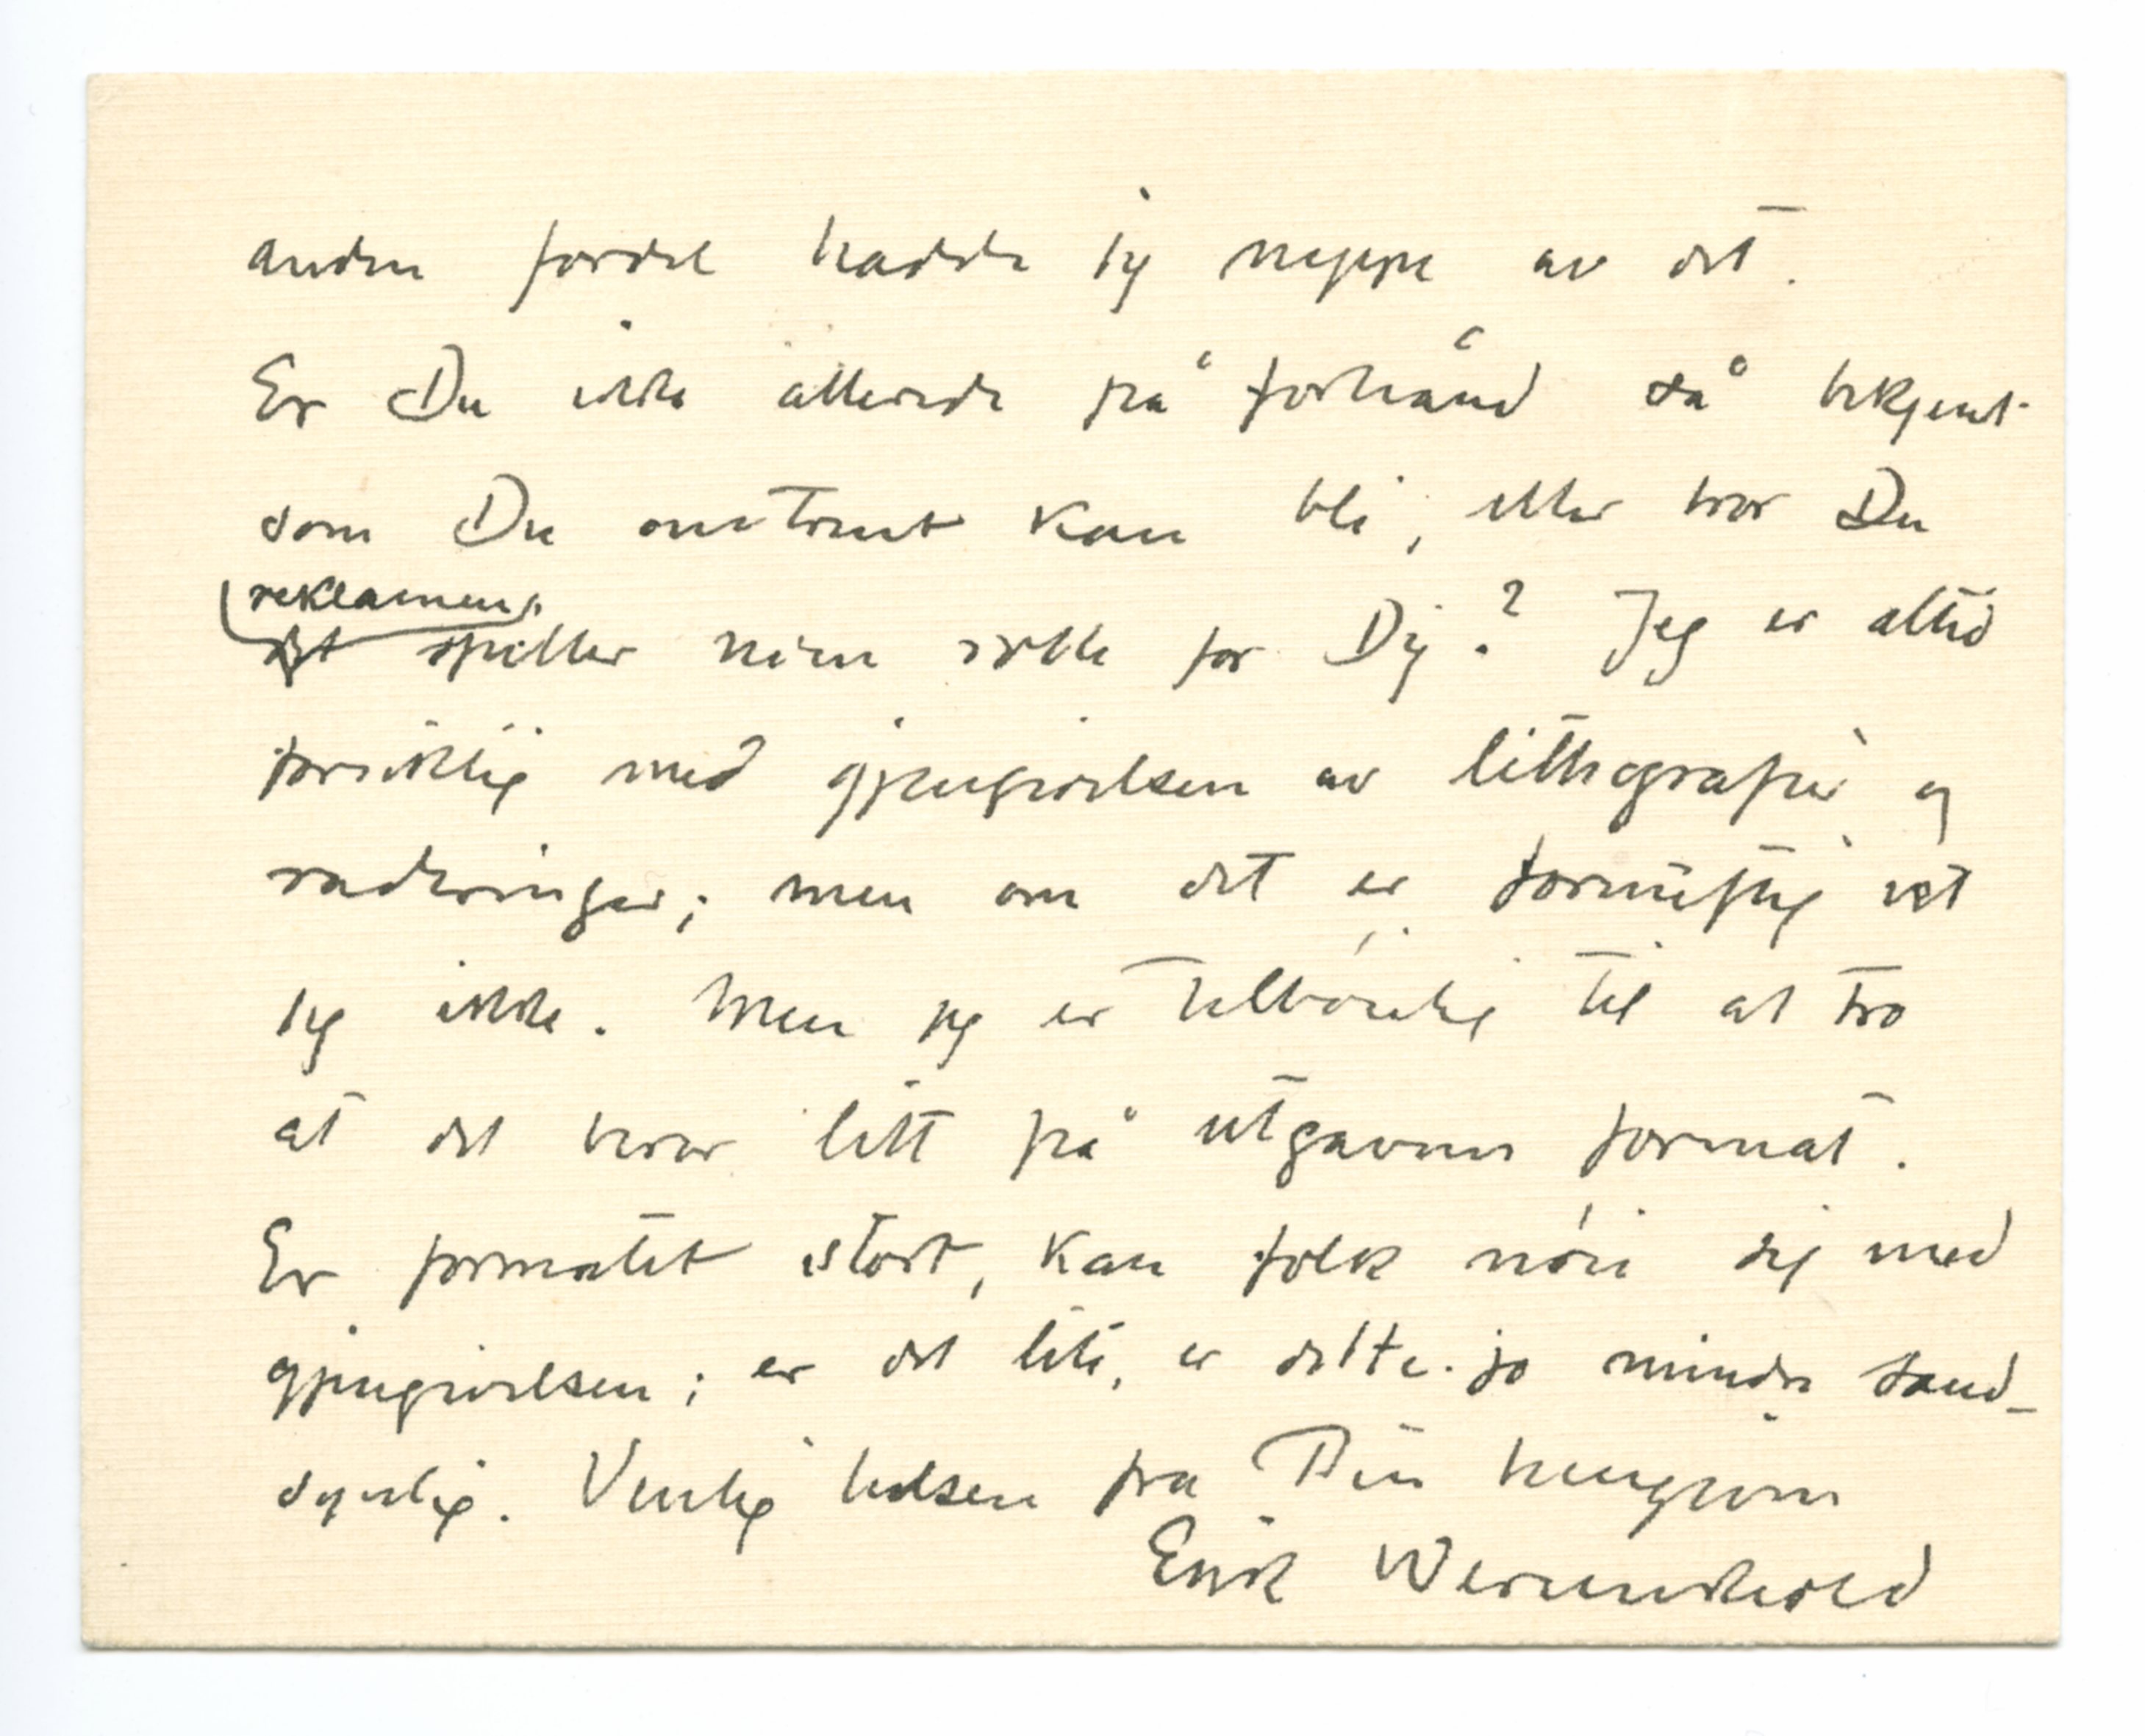 anden fordel hadde jeg neppe av det.
Er Du ikke allerede på forhånd så bekjent
som Du omtrent kan bli, eller tror Du
reklamen
det spiller noen rolle for Dig? Jeg er altid
forsiktig med gjengivelsen av lithografier og
raderinger; men om det er fornuftig vet
jeg ikke. Men jeg er tilbøielig til at tro
at det beror litt på utgavens format.
Er formatet stort, kan folk nøie sig med
gjengivelsen; er det lite, er dette jo mindre sand-
synlig. Venlig hilsen fra Din hengivne
Erik Werenskiold